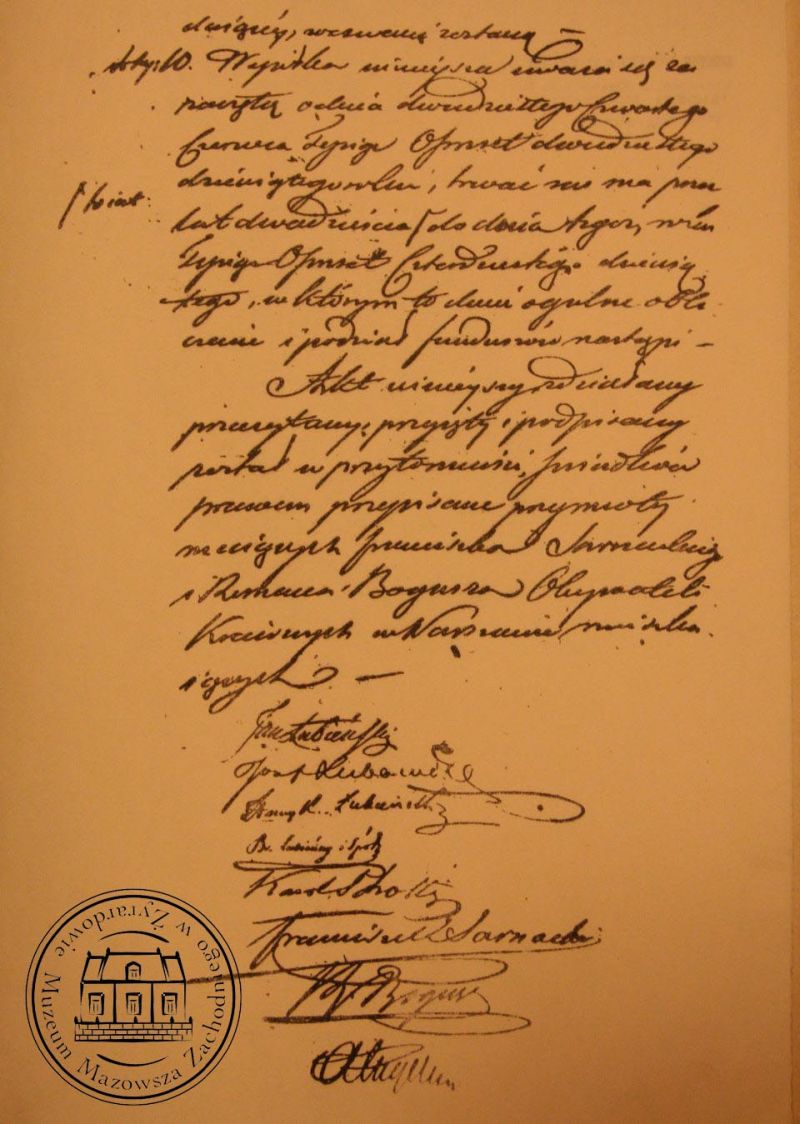 dzięciu, wezwani zostaną —
Arty: 10. Wspólka niniejsza uważa się za
zawiętą od dnia dwudziestego Czwartego
Czerwca Tysiąc Ośmset dwudziestego
dziewiątego roku, trwać zaś ma przez
/to iest
lat dwadzieścia / do dnia tegoż, w roku
Tysiąc Ośmset Czterdziestego dziewią
tego, w którym to dniu ogulne obli
czenie i podział funduszów nastąpi —
Akt ninieyszy zdziałany
przeczytany, przyięty i podpisany
został w przytomności Świadków
prawem przepisane przymioty
maiących Franciszka Sarnackiego
i Romana Bogusza Obywateli
Kraiowych w Warszawie mieszka
iących —
Jan Łubieński
Józef Lubowidzki
Henryk Łubieński
Br. Łubieńscy i Spółk
Karol Scholtz
Franciszek Sarnacki
R. Bogusz
Muzeum Mazowsza Zachodniego w Żyrardowie